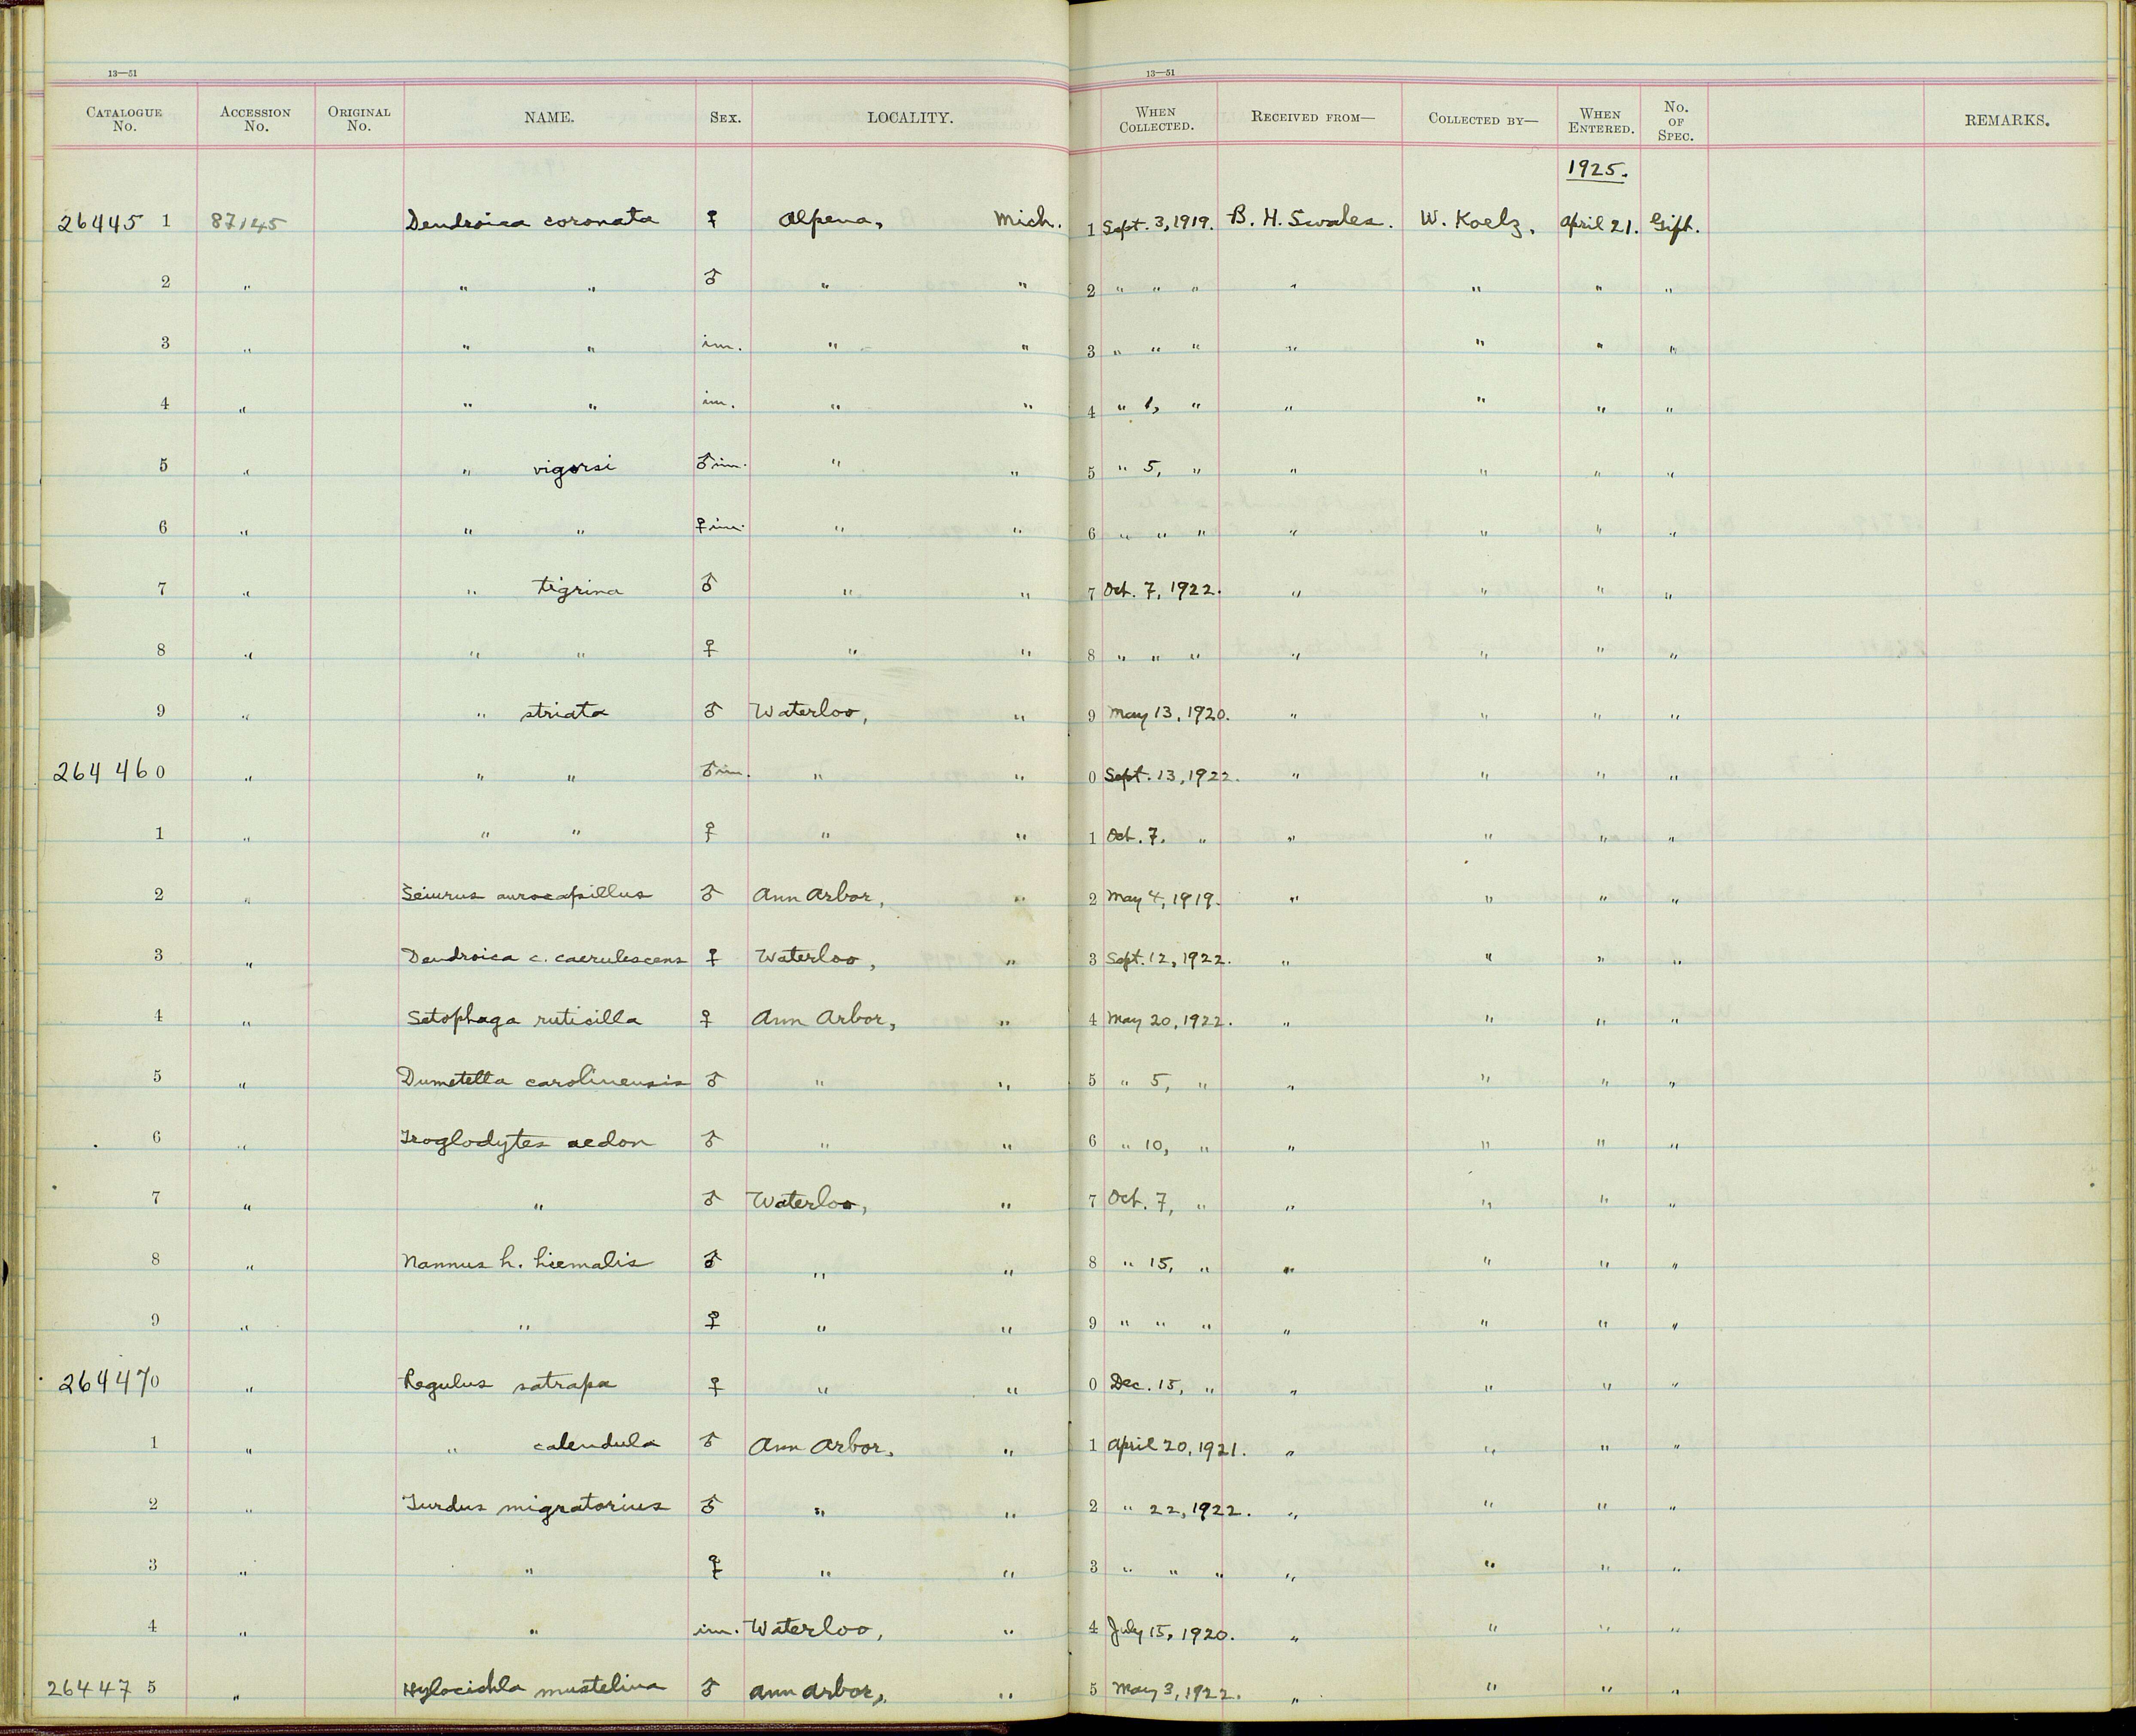 13—51 13—51
CATALOGUE No. ACCESSION No. ORIGINAL No. NAME. SEX. LOCALITY. WHEN COLLECTED. RECEIVED FROM— COLLECTED BY— WHEN ENTERED. No. OF SPEC. REMARKS.
1925.
26445 1 87145 Dendroica coronata ♀ Alpena, Mich. 1 Sept. 3, 1919. B. H. Swales. W. Koelz. April 21. Gift.
2 " " " ♂ " " 2 " " " " " " "
3 " " " im. " " 3 " " " " " " "
4 " " " im. " " 4 " 1, " " " " "
5 " " vigorsi ♂ im. " " 5 " 5, " " " " "
6 " " " ♀ im. " " 6 " " " " " " "
7 " " tigrina ♂ " " 7 Oct. 7, 1922. " " " "
8 " " " ♀ " " 8 " " " " " " "
9 " " striata ♂ Waterloo, " 9 May 13, 1920. " " " "
264 46 0 " " " ♂ im. " " 0 Sept. 13, 1922. " " " "
1 " " " ♀ " " 1 Oct. 7, " " " " "
2 " Seiurus aurocapillus ♂ Ann Arbor, " 2 May 4, 1919. " " " "
3 " Dendroica c. caerulescens ♀ Waterloo, " 3 Sept. 12, 1922. " " " "
4 " Setophaga ruticilla ♀ Ann Arbor, " 4 May 20, 1922. " " " "
5 " Dumetella carolinensis ♂ " " 5 " 5, " " " " "
6 " Troglodytes aedon ♂ " " 6 " 10, " " " " "
7 " " ♂ Waterloo, " 7 Oct. 7, " " " " "
8 " Nannus h. hiemalis ♂ " " 8 " 15, " " " " "
9 " " ♀ " " 9 " " " " " " "
26447 0 " Regulus satrapa ♀ " " 0 Dec. 15, " " " " "
1 " " calendula ♂ Ann Arbor, " 1 April 20, 1921. " " " "
2 " Turdus migratorius ♂ " " 2 " 22, 1922. " " " "
3 " " ♀ " " 3 " " " " " " "
4 " " im. Waterloo, " 4 July 15, 1920. " " " "
26447 5 " Hylocichla mustelina ♂ Ann Arbor, " 5 May 3, 1922. " " " "